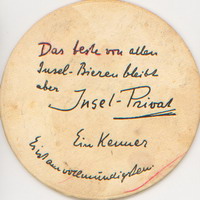 Das beste von allen
Insel-Bieren bleibt
aber Insel-Privat
Ein Kenner